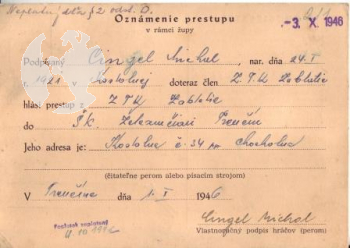 Neplatný dľa § 2 odst. D.
Oznámenie prestupu
v rámci župy
-3 X 1946
Podpísaný Cingel Michal nar. dňa 24.I
1921 v Kostolnej doteraz člen Z.T.K Záblatie
hlási prestup z Z T K Záblatie
do Šk. Železničiari Trenčín
Jeho adresa je: Kostolná č. 34 pp Chocholná
(čitateľne perom alebo písacím strojom)
V Trenčíne dňa 1.X 1946
Poplatok zaplatený
Cingel Michal
Vlastnoručný podpis hráčov (perom)